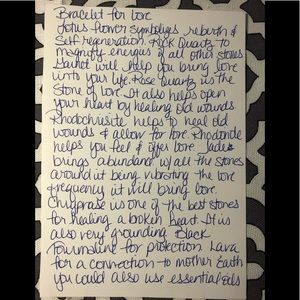 Bracelet for love
Lotus flower symbolizes rebirth &
self regeneration. Rock Quartz to
magnify energies of all other stones
Garnet will help you bring love
into your life. Rose Quartz is the
Stone of love. It also helps open
your heart by healing old wounds
Rhodochrisite helps to heal old
wounds & allow for love. Rhodonite
helps you feel & give love. Jade
brings abundance w/ all the stones
around it being vibrating the love
frequency it will bring love.
Chrysprase is one of the best stones
for healing a broken heart. It is
also very grounding. Black
Tourmaline for protection. Lava
for a connection to mother Earth
you could also use essential oils